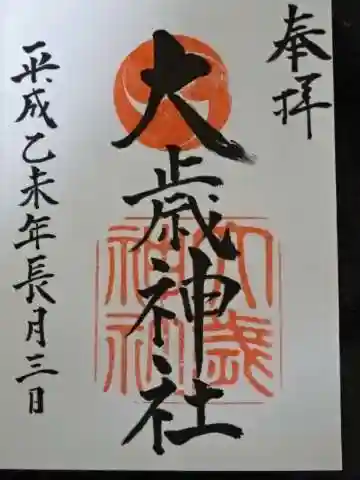 奉拝
大歳神社
大歳神社
平成乙未年長月三日